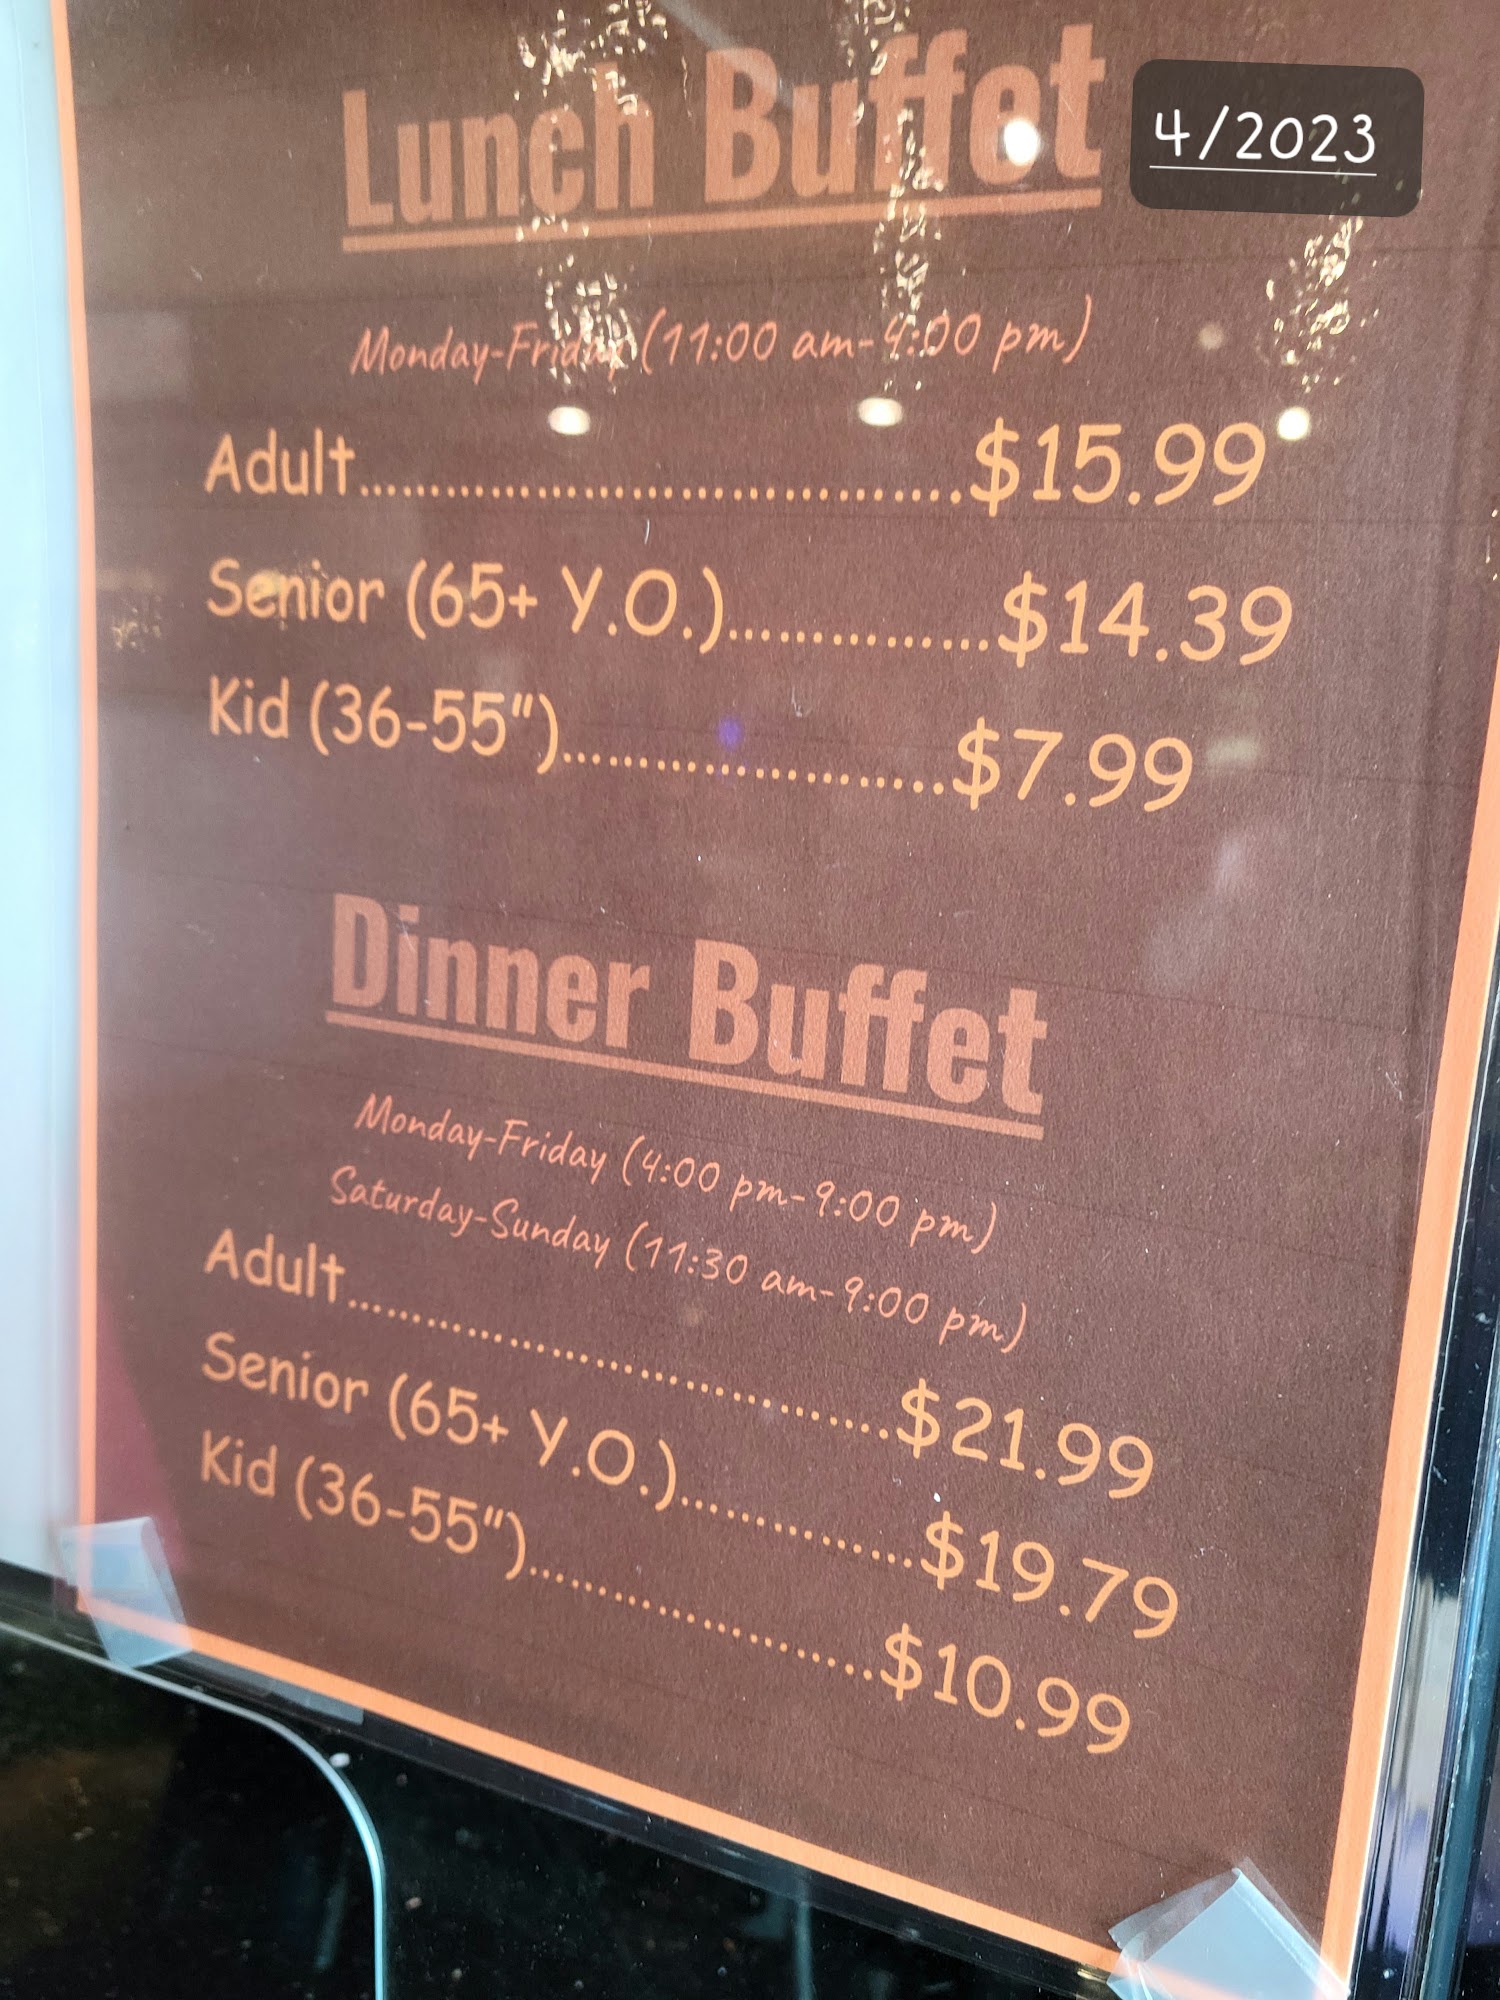 Lunch Buffet
4/2023
Monday-Friday (11:00 am-4:00 pm)
Adult.............................................$15.99
Senior (65+ Y.O.)...................$14.39
Kid (36-55")............................$7.99
Dinner Buffet
Monday-Friday (4:00 pm-9:00 pm)
Saturday-Sunday (11:30 am-9:00 pm)
Adult.............................................$21.99
Senior (65+ Y.O.)...................$19.79
Kid (36-55")............................$10.99